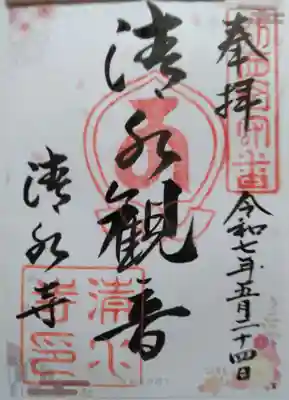 奉拝
令和七年五月二十四日
清水観音
清水寺
清水寺印